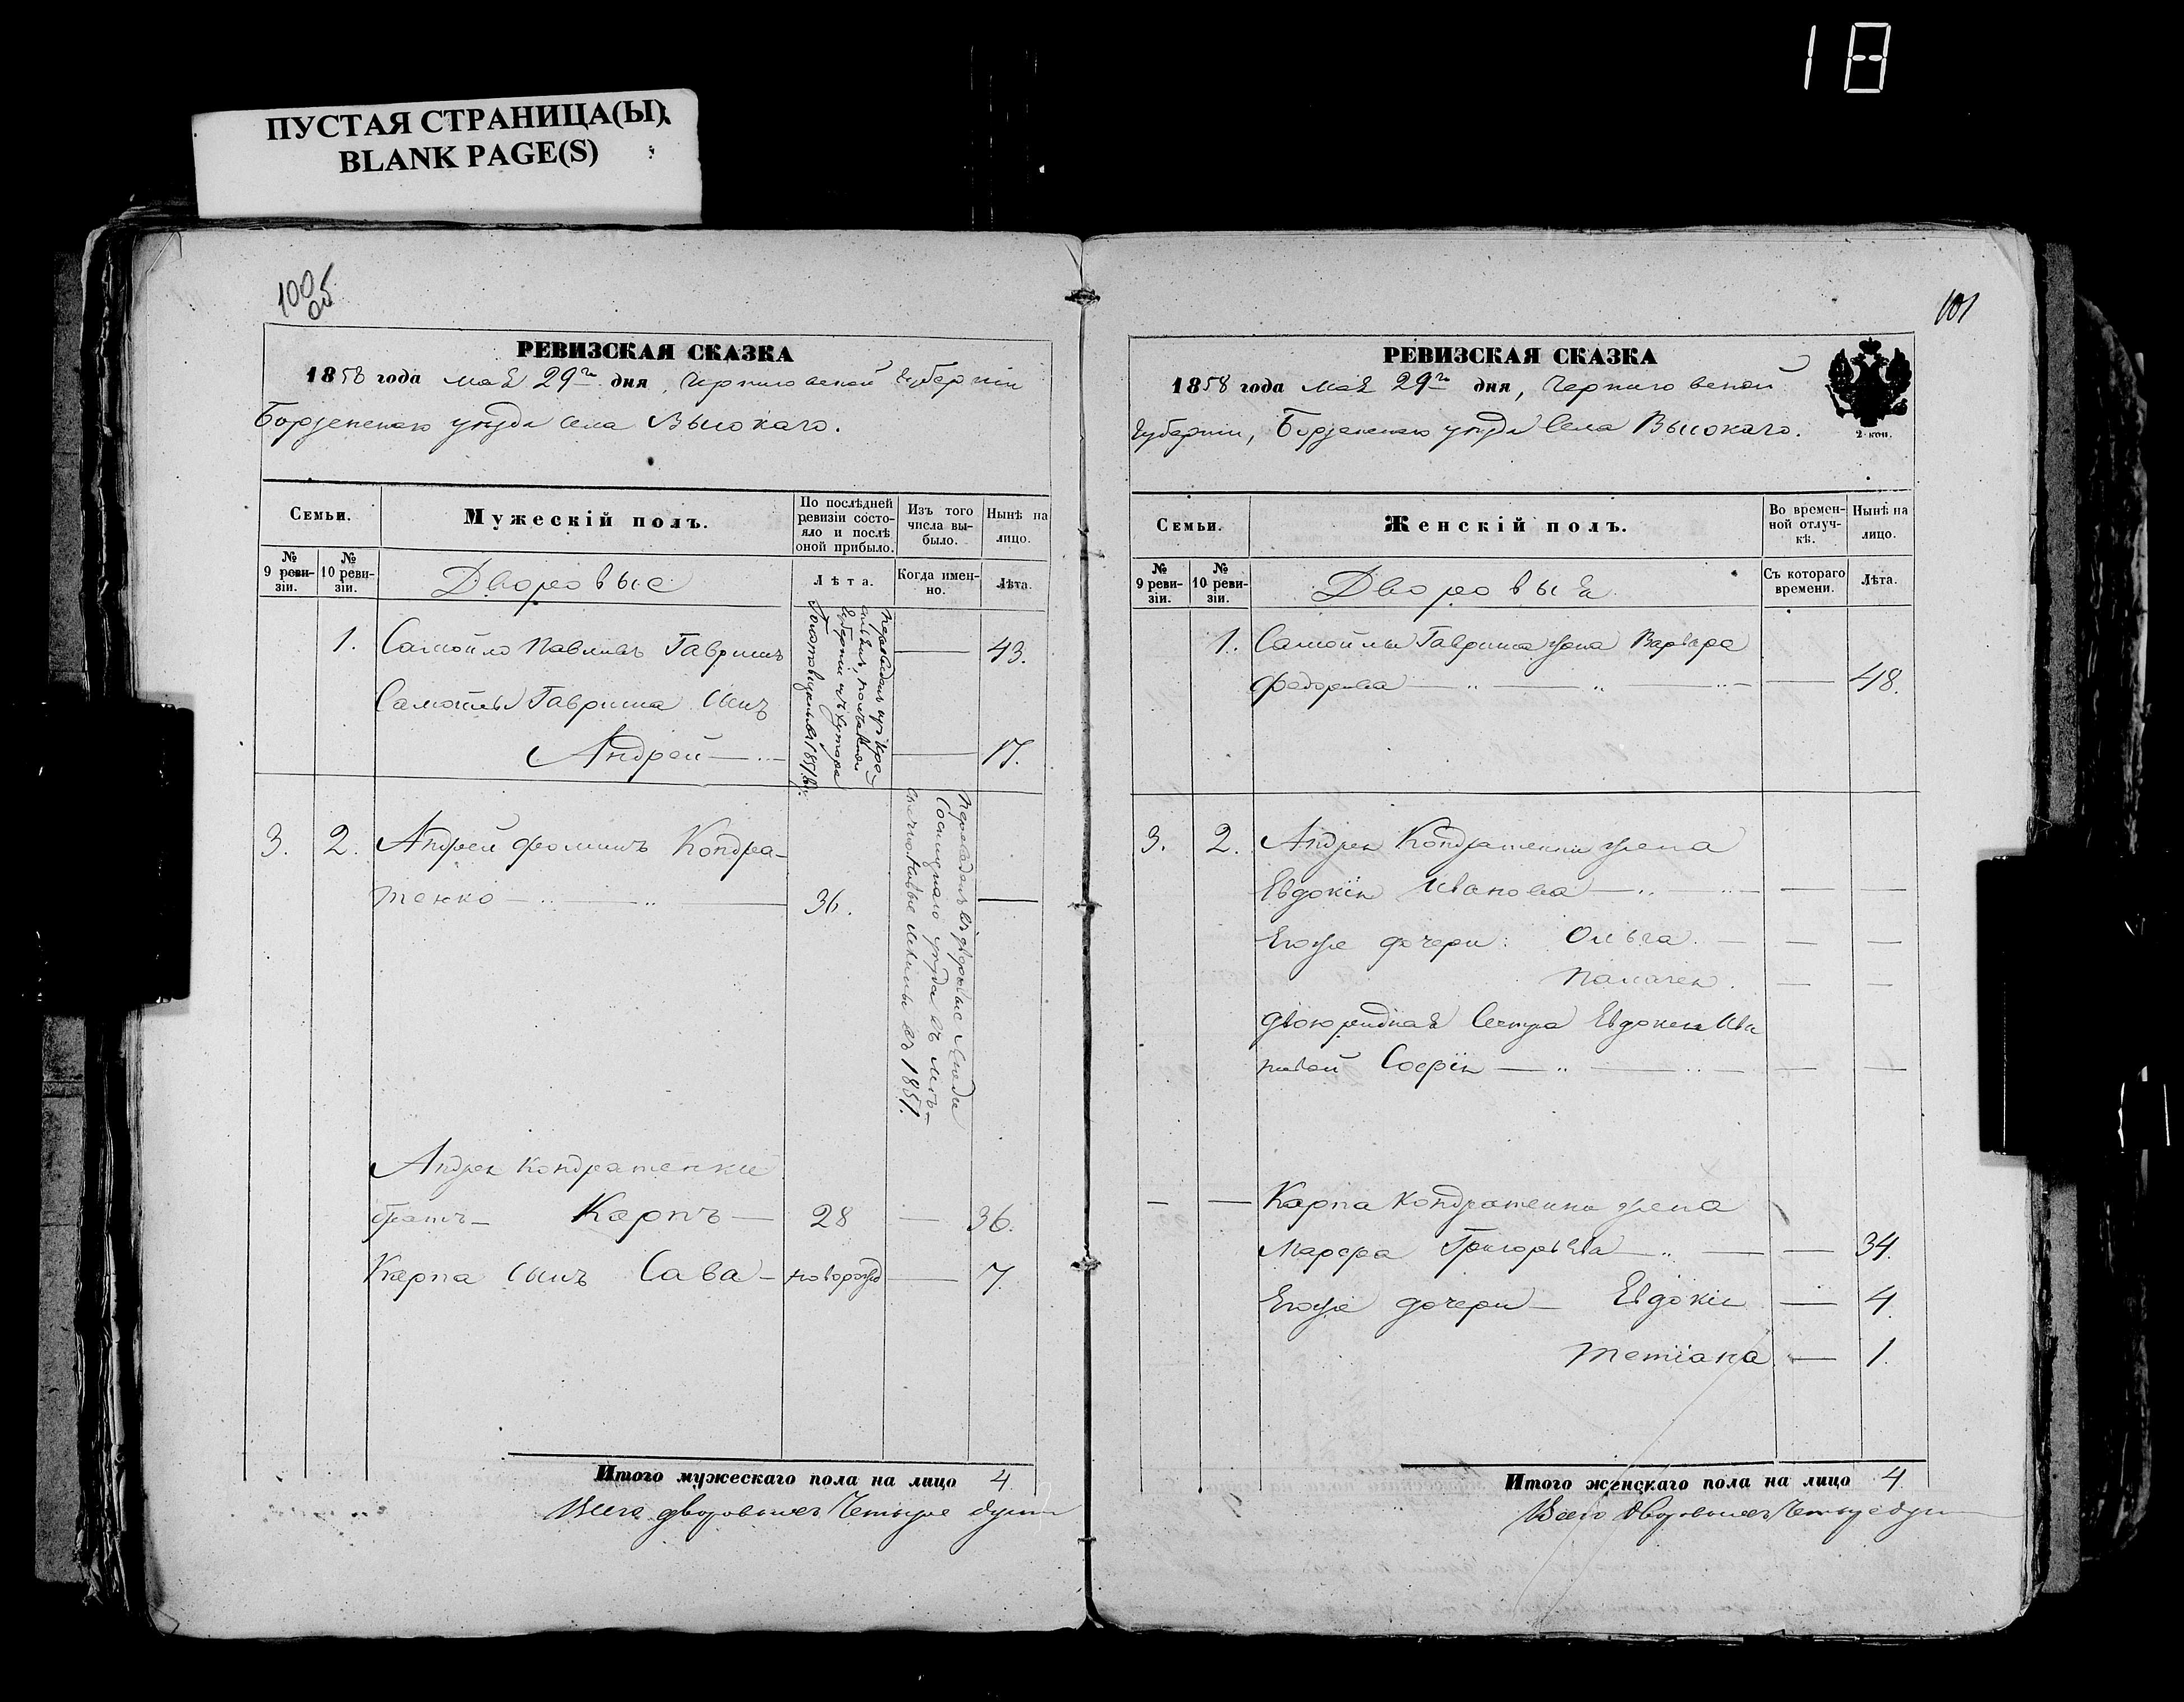 18
ПУСТАЯ СТРАНИЦА(Ы)
BLANK PAGE(S)
100
об
РЕВИЗСКАЯ СКАЗКА
1858 года мая 29го дня, Черниговской Губерніи
Борзенскаго уѣзда села Высокаго.
Семьи.
Мужескій полъ.
По послѣдней ревизіи состояло и послѣ оной прибыло.
Изъ того числа выбыло.
Нынѣ на лицо.
№ 9 ревизіи.
№ 10 ревизіи.
Дворовые
Лѣта.
Когда именно.
Лѣта.
1. Самойло Павловъ Гавришъ — 43.
Самойлы Гавриша сынъ
Андрей — 17.
Губерніи изъ хутора
3. 2. Андрей Фоминъ Кондра-
тенко — 36. —
Переведенъ въ дворовые люди
Сосницкаго уѣзда въ мѣ-
стечко Новые Млины въ 1851.
Андрея Кондратенка
братъ — Карпъ — 28 — 36.
Карпа сынъ Сава — новорожд — 7.
Итого мужескаго пола на лицо 4
Всего дворовыхъ Четыре души
101
РЕВИЗСКАЯ СКАЗКА
1858 года мая 29го дня, Черниговской
Губерніи, Борзенскаго уѣзда Села Высокаго.
2 коп.
Семьи.
Женскій полъ.
Во временной отлучкѣ.
Нынѣ на лицо.
№ 9 ревизіи.
№ 10 ревизіи.
Дворовыя
Съ котораго времени.
Лѣта.
1. Самойлы Гавриша жена Варвара
Федорова — — 48.
3. 2. Андрея Кондратенка жена
Евдокія Иванова — — —
Егоже дочери: Ольга. — — —
Палагея. — —
двоюродная Сестра Евдокеи Ива
новой Софія — — —
— — Карпа Кондратенка жена
Марфа Григорьева — — 34.
Егоже дочери — Евдокія — 4.
Тетіана — 1.
Итого женскаго пола на лицо 4
Всего дворовыхъ Четыре души